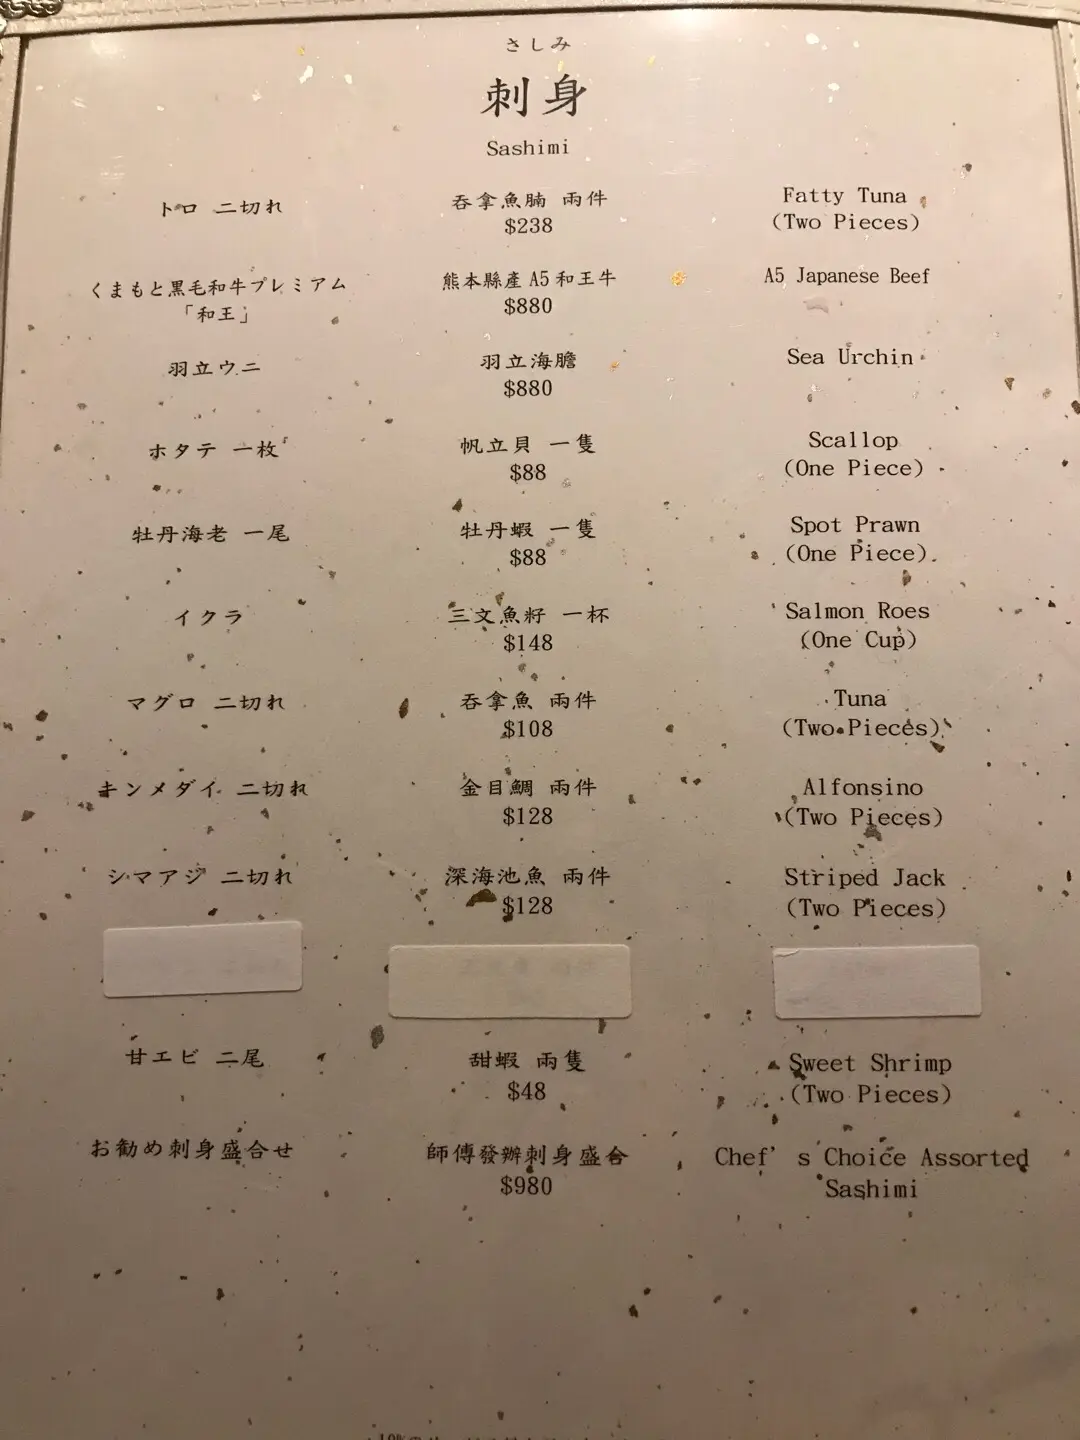 さしみ
刺身
Sashimi
トロ 二切れ 吞拿魚腩 兩件 Fatty Tuna
$238 (Two Pieces)
くまもと黒毛和牛プレミアム 熊本縣產 A5 和王牛 A5 Japanese Beef
「和王」 $880
羽立ウニ 羽立海膽 Sea Urchin
$880
ホタテ 一枚 帆立貝 一隻 Scallop
$88 (One Piece)
牡丹海老 一尾 牡丹蝦 一隻 Spot Prawn
$88 (One Piece)
イクラ 三文魚籽 一杯 Salmon Roes
$148 (One Cup)
マグロ 二切れ 吞拿魚 兩件 Tuna
$108 (Two Pieces)
キンメダイ 二切れ 金目鯛 兩件 Alfonsino
$128 (Two Pieces)
シマアジ 二切れ 深海池魚 兩件 Striped Jack
$128 (Two Pieces)
甘エビ 二尾 甜蝦 兩隻 Sweet Shrimp
$48 (Two Pieces)
お勧め刺身盛合せ 師傅發辦刺身盛合 Chef's Choice Assorted
$980 Sashimi